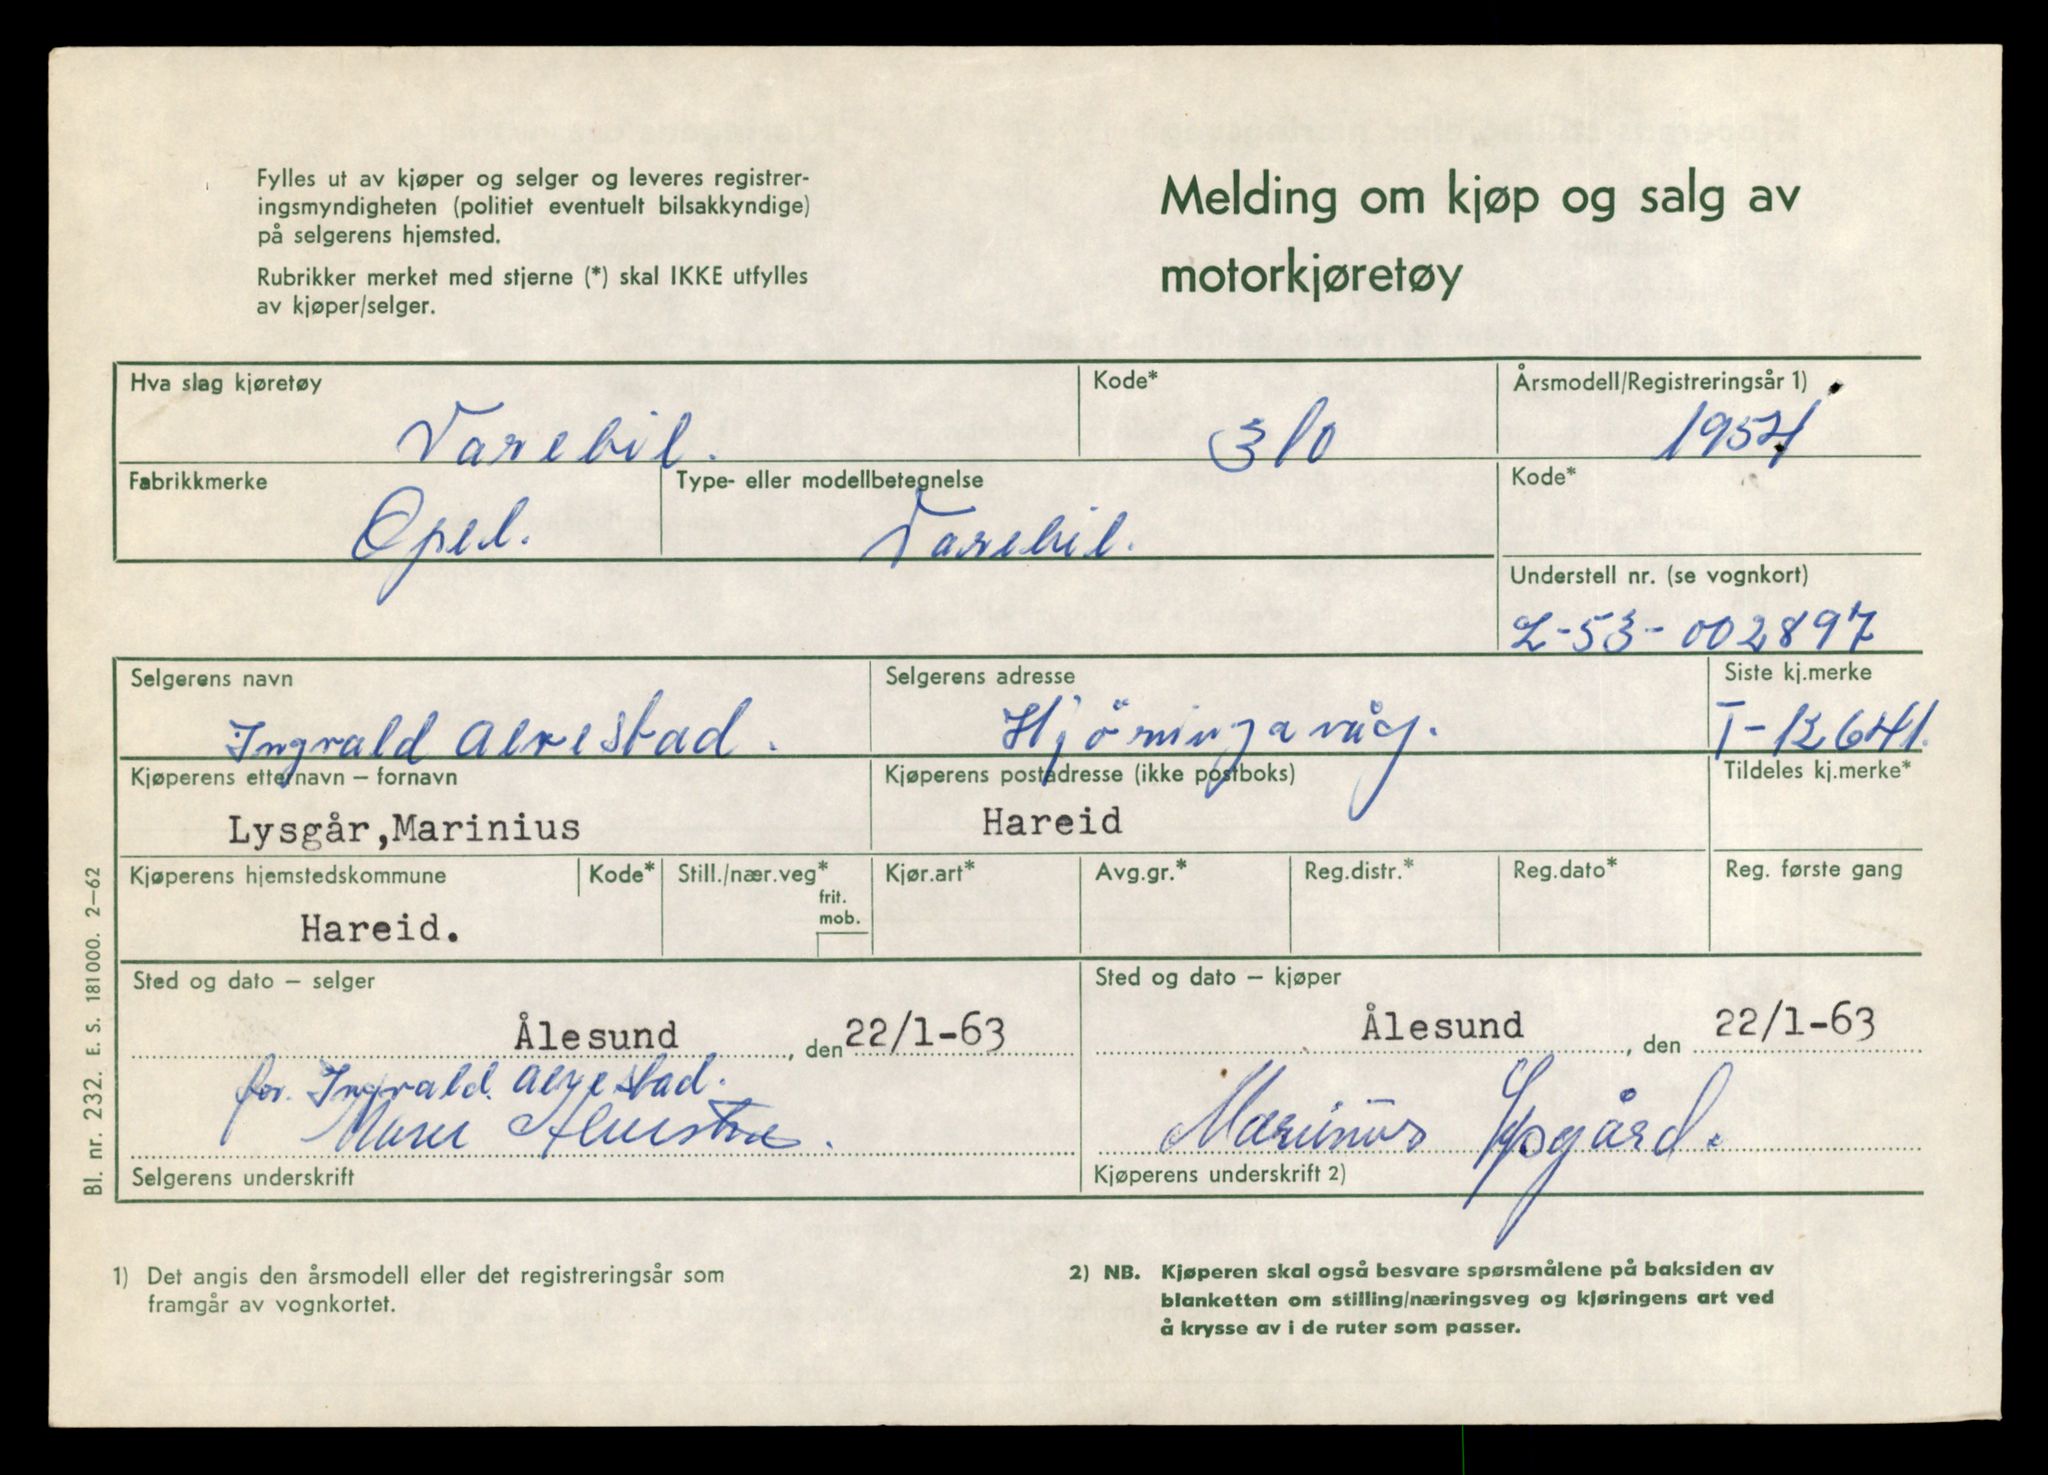 Fylles ut av kjøper og selger og leveres registrer-
ingsmyndigheten (politiet eventuelt bilsakkyndige)
på selgerens hjemsted.
Rubrikker merket med stjerne (*) skal IKKE utfylles
av kjøper/selger.
Melding om kjøp og salg av
motorkjøretøy
Hva slag kjøretøy
Varebil.
Kode*
310
Årsmodell/Registreringsår 1)
1954
Fabrikkmerke
Opel.
Type- eller modellbetegnelse
Varebil.
Kode*
Understell nr. (se vognkort)
L-53-002897
Selgerens navn
Ingvald Alvestad.
Selgerens adresse
Hjörungavåg.
Siste kj.merke
T-12641.
Kjøperens etternavn – fornavn
Lysgår,Marinius
Kjøperens postadresse (ikke postboks)
Hareid
Tildeles kj.merke*
Kjøperens hjemstedskommune
Hareid.
Kode*
Still./nær.veg*
frit.
mob.
Kjør.art*
Avg.gr.*
Reg.distr.*
Reg.dato*
Reg. første gang
Sted og dato – selger
Ålesund, den 22/1-63
for. Ingvald Alvestad.
Selgerens underskrift
Sted og dato – kjøper
Ålesund, den 22/1-63
Marinius Lysgård.
Kjøperens underskrift 2)
1) Det angis den årsmodell eller det registreringsår som
framgår av vognkortet.
2) NB. Kjøperen skal også besvare spørsmålene på baksiden av
blanketten om stilling/næringsveg og kjøringens art ved
å krysse av i de ruter som passer.
Bl. nr. 232. E. S. 181000. 2–62